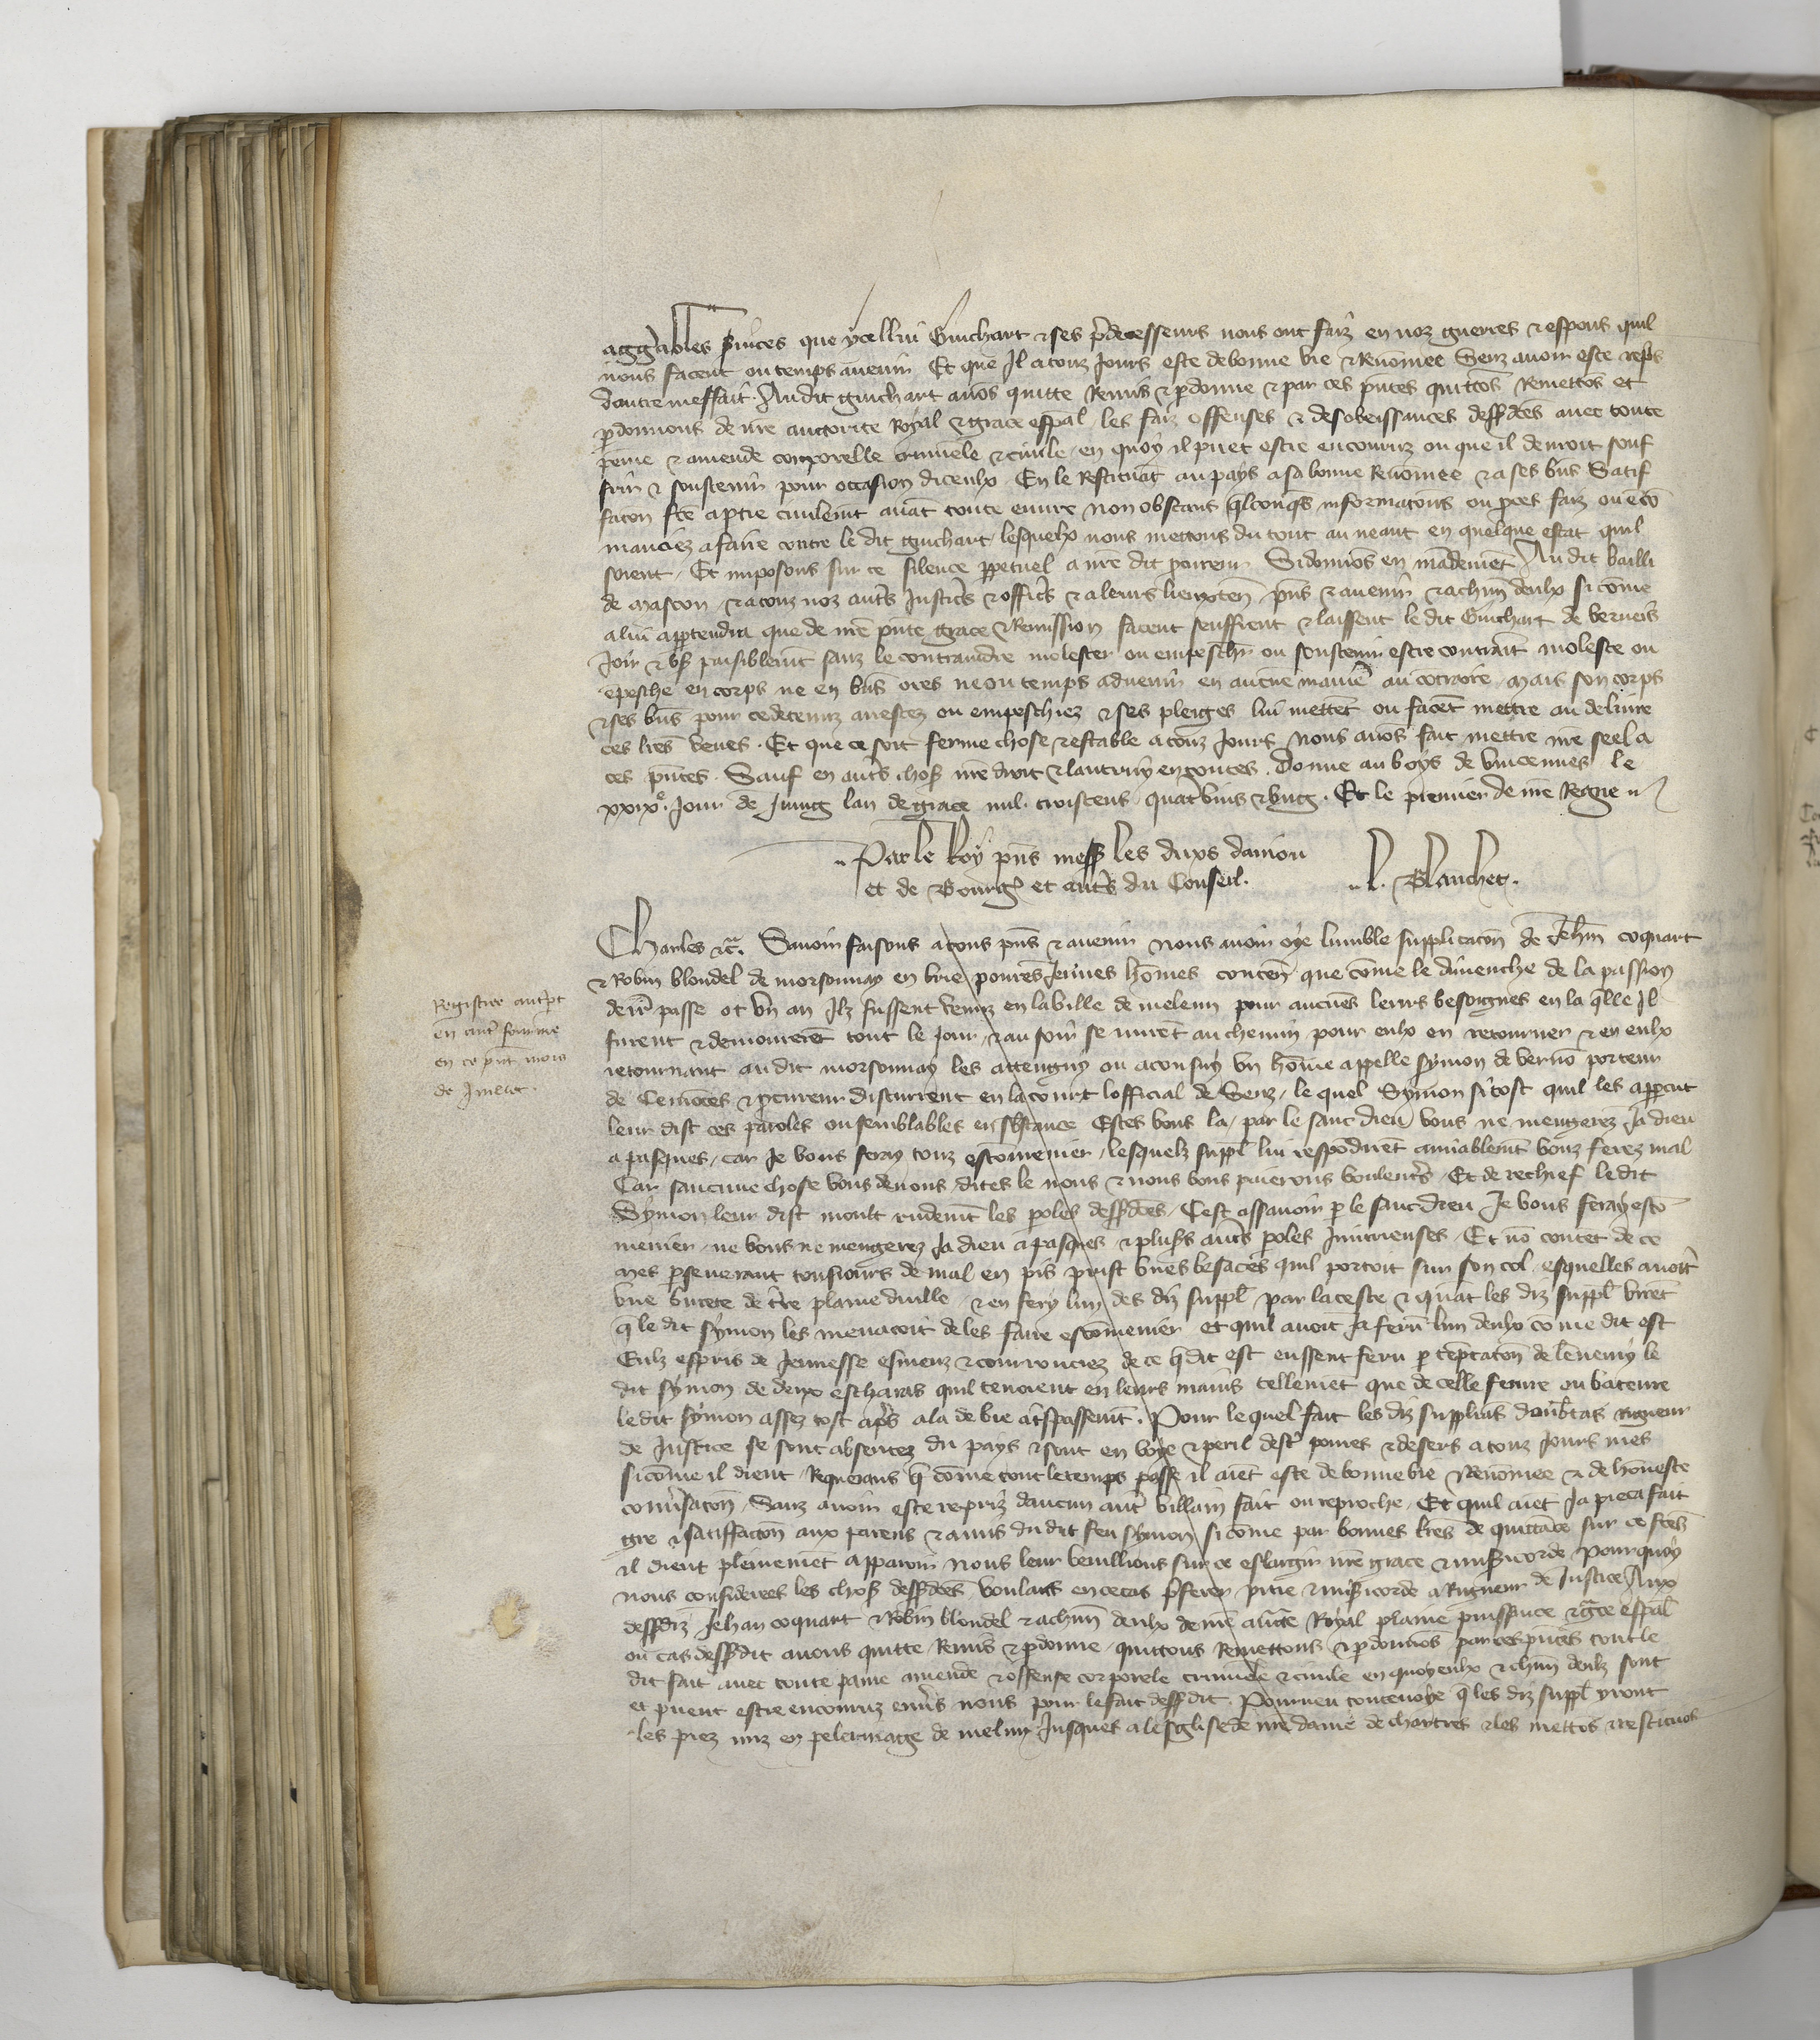 aggreables suices que ycellui Guichart & ses p̃decesseurs nous ont faiz en noz guerres & espons quil
nous facent ou temps auenir Et que Il a touz Jours este de bonne vie & Renõmee Senz auoir este reprĩs
dautre meffait. Audit guichart auõs quitte Remis & p̱donne & par ces p̃ntes quittõs Remettõs et
p̱donnons de nr̃e auctorite Royal & grace esp̃al les faiz offenses & desobeissances dess᷒dc̃es auec toute
peine & amende corporelle criminele & ciuile en quoy il puet estre encouruz ou que il deuroit souf
frir & soustenir pour occasion diceulx En le Restituãt au pays a sa bonne Renõmee & a ses biẽs Satif
facon fc̃e a p̱tie ciuilemẽt auãt toute euure non obstans q̃lconq̃s informacõns ou p̱ces faiz ou ecõ
manciez a faire contre le dit guichart lesquelx nous mettons du tout au neant en quelque estat quil
soient Et imposons sur ce silence p̱petuel a nr̃e dit procureur Si donnõs en mãdemẽt Audit bailli
de Mascon & a touz noz autr̃s Justicr̃s & officr̃s & a leurs lieuxten̄ p̃ns & auenir & a chũn deulx si cõme
a lui app̱tendra que de nr̃e p̃nte grace & Remission facent seuffrent & laissent le dit Guichart de verneis
Joir & vs᷒ paisiblemẽt sanz le contraindre molester ou empeschr̃ ou soustenir estre contraĩt moleste ou
ẽpesche en corps ne en biẽs ores ne ou temps aduenir en aucune manier̃ au cõtraire Mais son corps
& ses biẽs pour ce detenuz arrestez ou empeschiez & ses pleiges lui mettẽt ou facẽt mettre au deliure
ces lr̃es veues. Et que ce soit ferme chose & estable a touz Jours Nous auõs fait mettre nr̃e seel a
ces p̃ntes. Sauf en autr̃s chos᷒ nr̃e droit & lautruy en toutes. Donne au boys de vincennes le
xxixᵉ. Jour de Juing lan de grace mil. troiscens quatˢvins & vng. Et le premier de nr̃e Regne
Par le Roy p̃ns mess᷒ les dux daniou
et de Bourgˢ et autr̃s du Conseil. L. Blanchet.
Charles &c̃. Sauoir faisons a tous p̃ns & auenir nous auoir oye lumble supplicacõn de Jeh̃n coquart
& Robin blondel de morsonnay en brie poures Jeunes hõmes contenˢ que cõme le dimenche de la passion
derr̃ passe ot vn an Ilz fussent venuz en la ville de meleun pour aucunẽs leurs besoignes en la q̃lle Il
furent & demourerẽt tout le Jour & au soir se mirẽt au chemin pour eulx en retourner & en eulx
retournant audit morsonnay les attengny ou aconsuy vn hõme appelle symon de vernõ porteur
de Cemõces & p̱cureur discurrent en la court lofficial de Senz, le quel Symon si tost quil les app̱cut
leur dist ces paroles ou semblables en sb̃stance Estes vous la, par le sanc dieu vous ne mengerez Ja dieu
a pasques, car Je vous feray touz escõmenier, lesquelz suppl̃ lui respõdirẽt amiablemẽt vouz ferez mal
Car saucune chose vous deuons dites le nous & nous vous paierons voulentr̃s, Et de rechief le dit
Symon leur dist moult rudemẽt les p̱oles dess᷒dc̃es, Cest assauoir p̱ le sanc dieu Je vous feray escõ
menier, ne vous ne mengerez Ja dieu a pasques & plusˢs autr̃s p̱oles Iniurieuses, Et nõ contẽt de ce
mes p̱seuerant tousiours de mal en pis prist vnes besaces quil portoit sur son col esquelles auoit
vne buirete de tr̃re plaine duille & en fery lun des diz suppl̃ par la teste & quãt les diz suppl̃ virẽt
q̃ le dit symon les menacoit de les faire escõmenier et quil auoit Ja feru lun deulx cõme dit est
Eulz espris de Jeunesse esmeuz & courrouciez de ce q̃ dit est eussent feru p̱ tẽptacõn de lẽnemy le
dit symon de deux escharas quil tenoient en leurs mains tellemẽt que de celle ferure ou bateure
ledit symon assez tost ap̃s ala de vie a tˢspassemẽt. Pour lequel fait les diz suppliãs doubtãs Rigueur
de Justice se sont absentez du pays & sont en voye & peril destˢ poures & desers a touz Jours mes
si cõme il dient Requerans q̃ cõme tout le temps passe il aiẽt este de bonne vie & Renõmee & de hõneste
conuˢsacõn, Sanz auoir este repriz daucun autˢ villain fait ou reproche, Et quil aiẽt Ja pieca fait
gre & satiffacõn aux parens & amis du dit feu symon si cõme par bonnes lr̃es de quittãce sur ce fc̃es
il dient pleinemẽt apparoir nous leur veuillions sur ce eslargir nr̃e grace & misˢicorde pour quoy
nous considerees les chos᷒ dess᷒dc̃es voulans en ce cas p̃ferer pitie & misˢicorde a Rigueur de Justice Aux
dess᷒diz Jehan coquart & Robin blondel & a chũn deulx de nr̃e auctˢte Royal plaine puissance & gr̃ce esp̃al
ou cas dess᷒dit auons quitte Remis & p̱donne, quittons Remettons & p̱donnõs par ces p̃ntes tout le
dit fait auec toute paine amende & offense corporele criminele & ciuile en quoy eulx & chũn deulz sont
et puent estre encouruz enuˢs nous pour le fait dess᷒dit. Pourueu toutesuoye q̃ les diz suppl̃ yront
les piez nuz en pelerinage de melun Jusques a leglise de nr̃e dame de chartres & les mettõs & restituõs
Registree autrˢpt
en autˢ forme
en ce p̃nt mois
de Juillet.